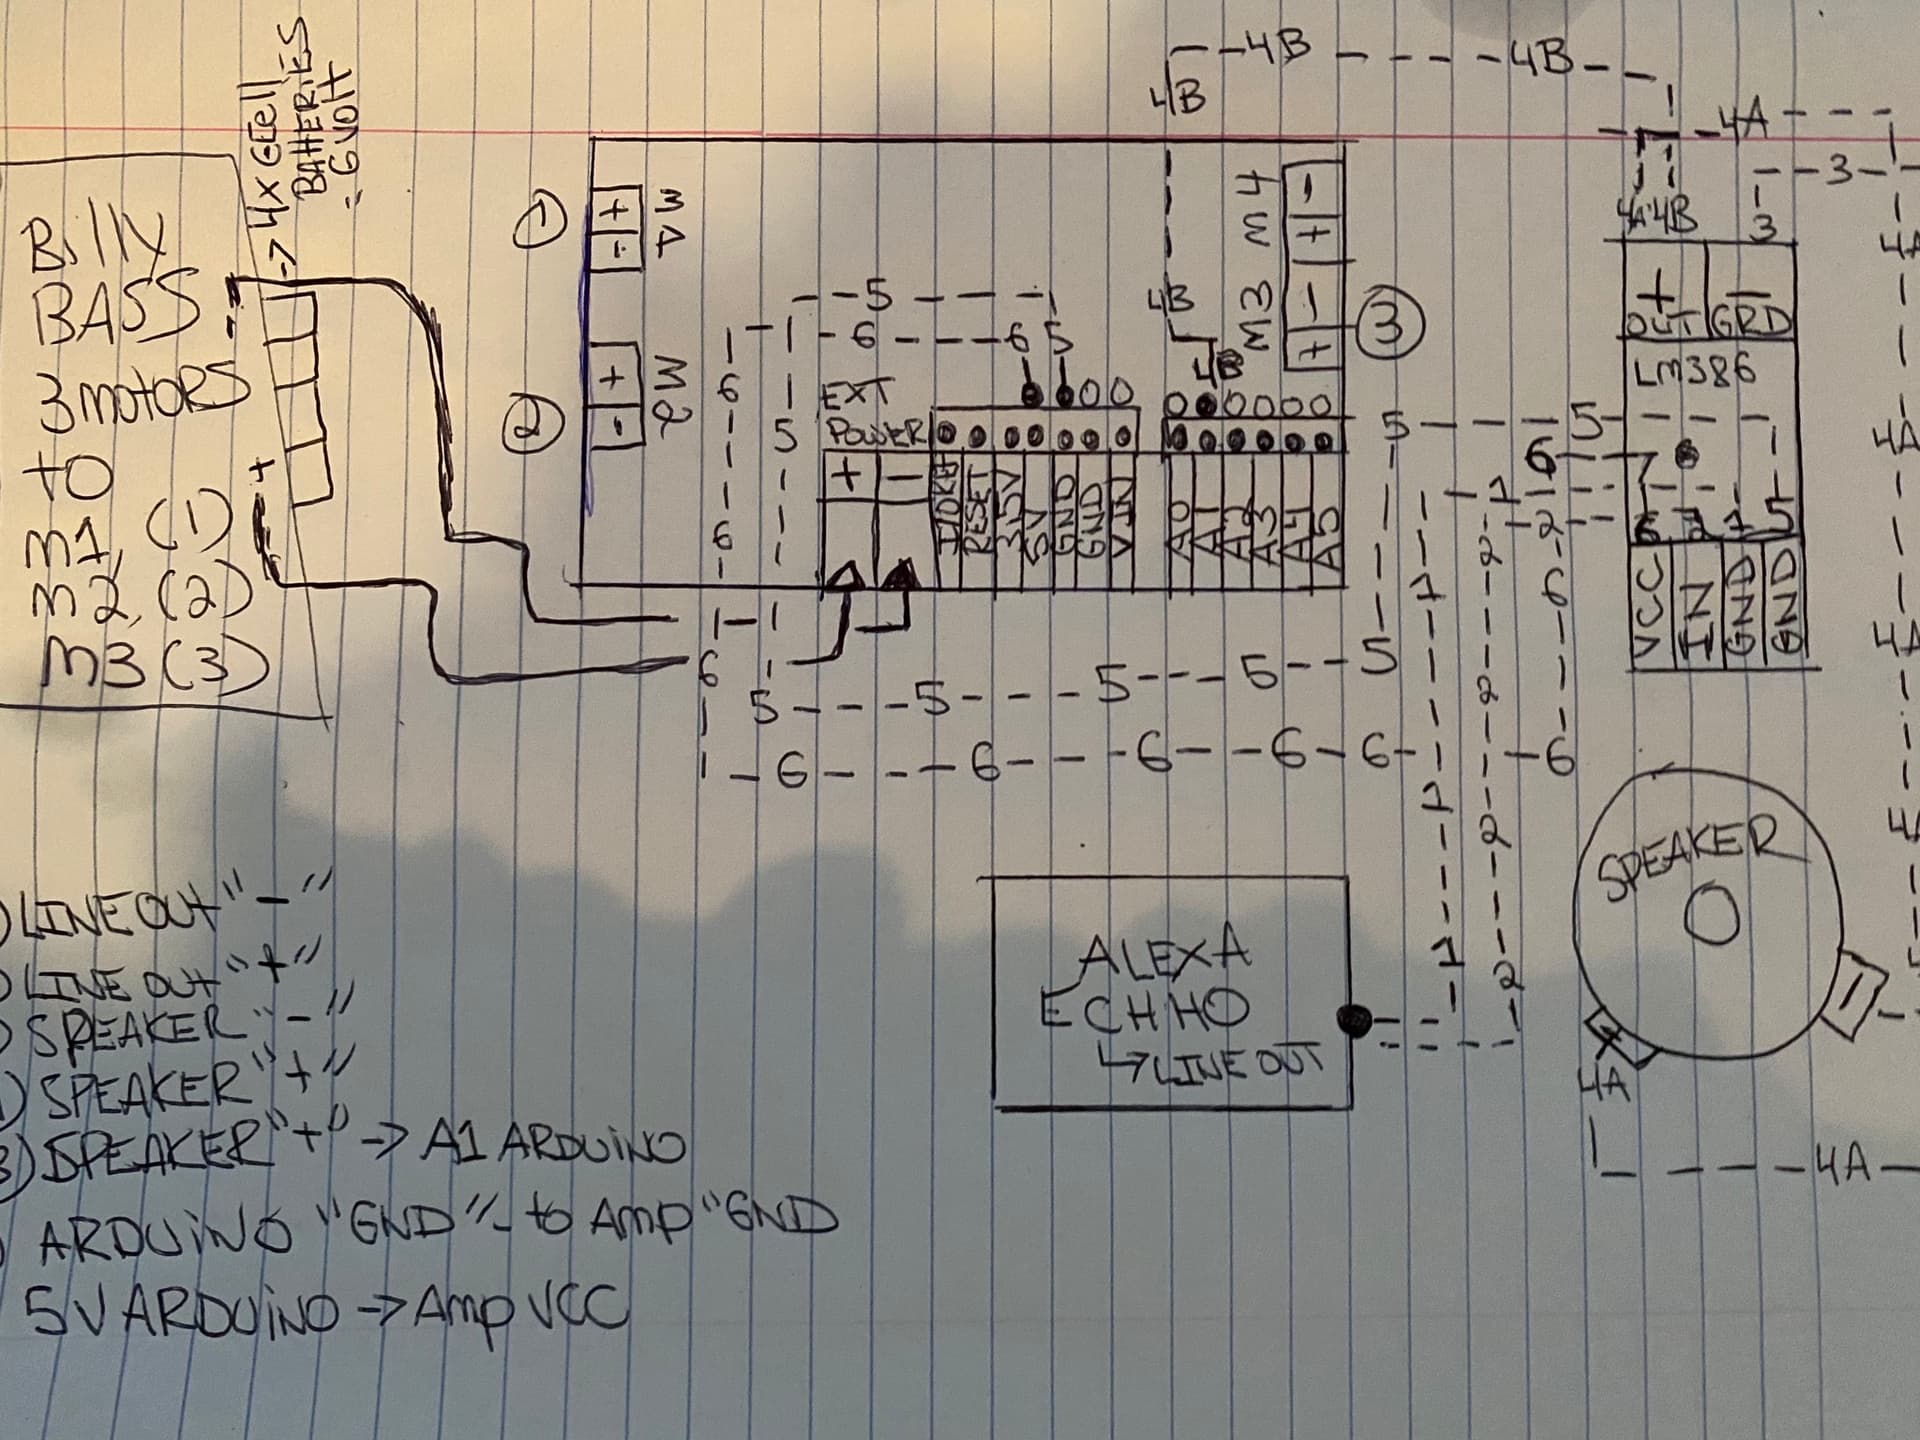 4x C Cell
BATTERIES
= 6 VOLT
Billy
BASS
3 motors
to
M1, (1)
M2, (2)
M3 (3)
+
1
+
-
2
+
-
M2
EXT
POWER
+ -
IOREF
RESET
3.3V
5V
GND
GND
VIN
A0
A1
A2
A3
A4
A5
M4
- +
M3
- +
3
5
6 6 5
6
5
6
6
5 5 5 5 5
6 6 6 6 6 6
4B 4B
4B
4B
4B
4A
3
4A 4B 3
+ -
OUT GRD
LM386
5 5
6
1
2
6 2 1 5
VCC
IN
GND
GND
1
2
6
2
1
2
1
2
4A
4A
4A
4A
SPEAKER
ALEXA
ECHHO
↳ LINE OUT
4A
4A
) LINE OUT "-"
) LINE OUT "+"
) SPEAKER "-"
) SPEAKER "+"
) SPEAKER "+" -> A1 ARDUiNO
ARDUiNO "GND" - to Amp "GND
5V ARDUiNO -> Amp VCC